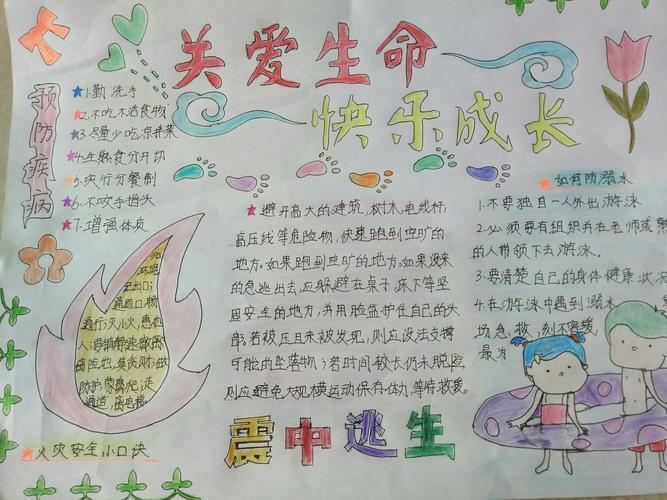 关爱生命
快乐成长
预防疾病
1.勤洗手
2.不吃不洁食物
3.尽量少吃凉拌菜
4.生熟食分开切
5.实行分餐制
6.不咬手指头
7.增强体质
避开高大的建筑,树木,电线杆,
高压线等危险物,快速跑到空旷的
地方.如果跑到空旷的地方.如果没来
的急逃出去,应躲避在桌子、床下等坚
固安全的地方,并用脸盆护住自己的头
部;若被压且未被发现,则应设法支撑
可能的坠落物;若时间较长仍未脱险,
则应避免大规模运动保存体力,等待救援。
震中逃生
如何防溺水
1.不要独自一人外出游泳
2.必须要有组织并在老师或
的人带领下去游泳.
3.要清楚自己的身体健康状
4.在游泳中遇到溺水
场急救,刻不容缓
最为
环境
出口
通道口
通行,灭小火,惠
火灾安全小口诀